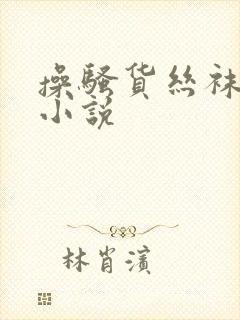 操騷货丝袜
小説
林肖濱